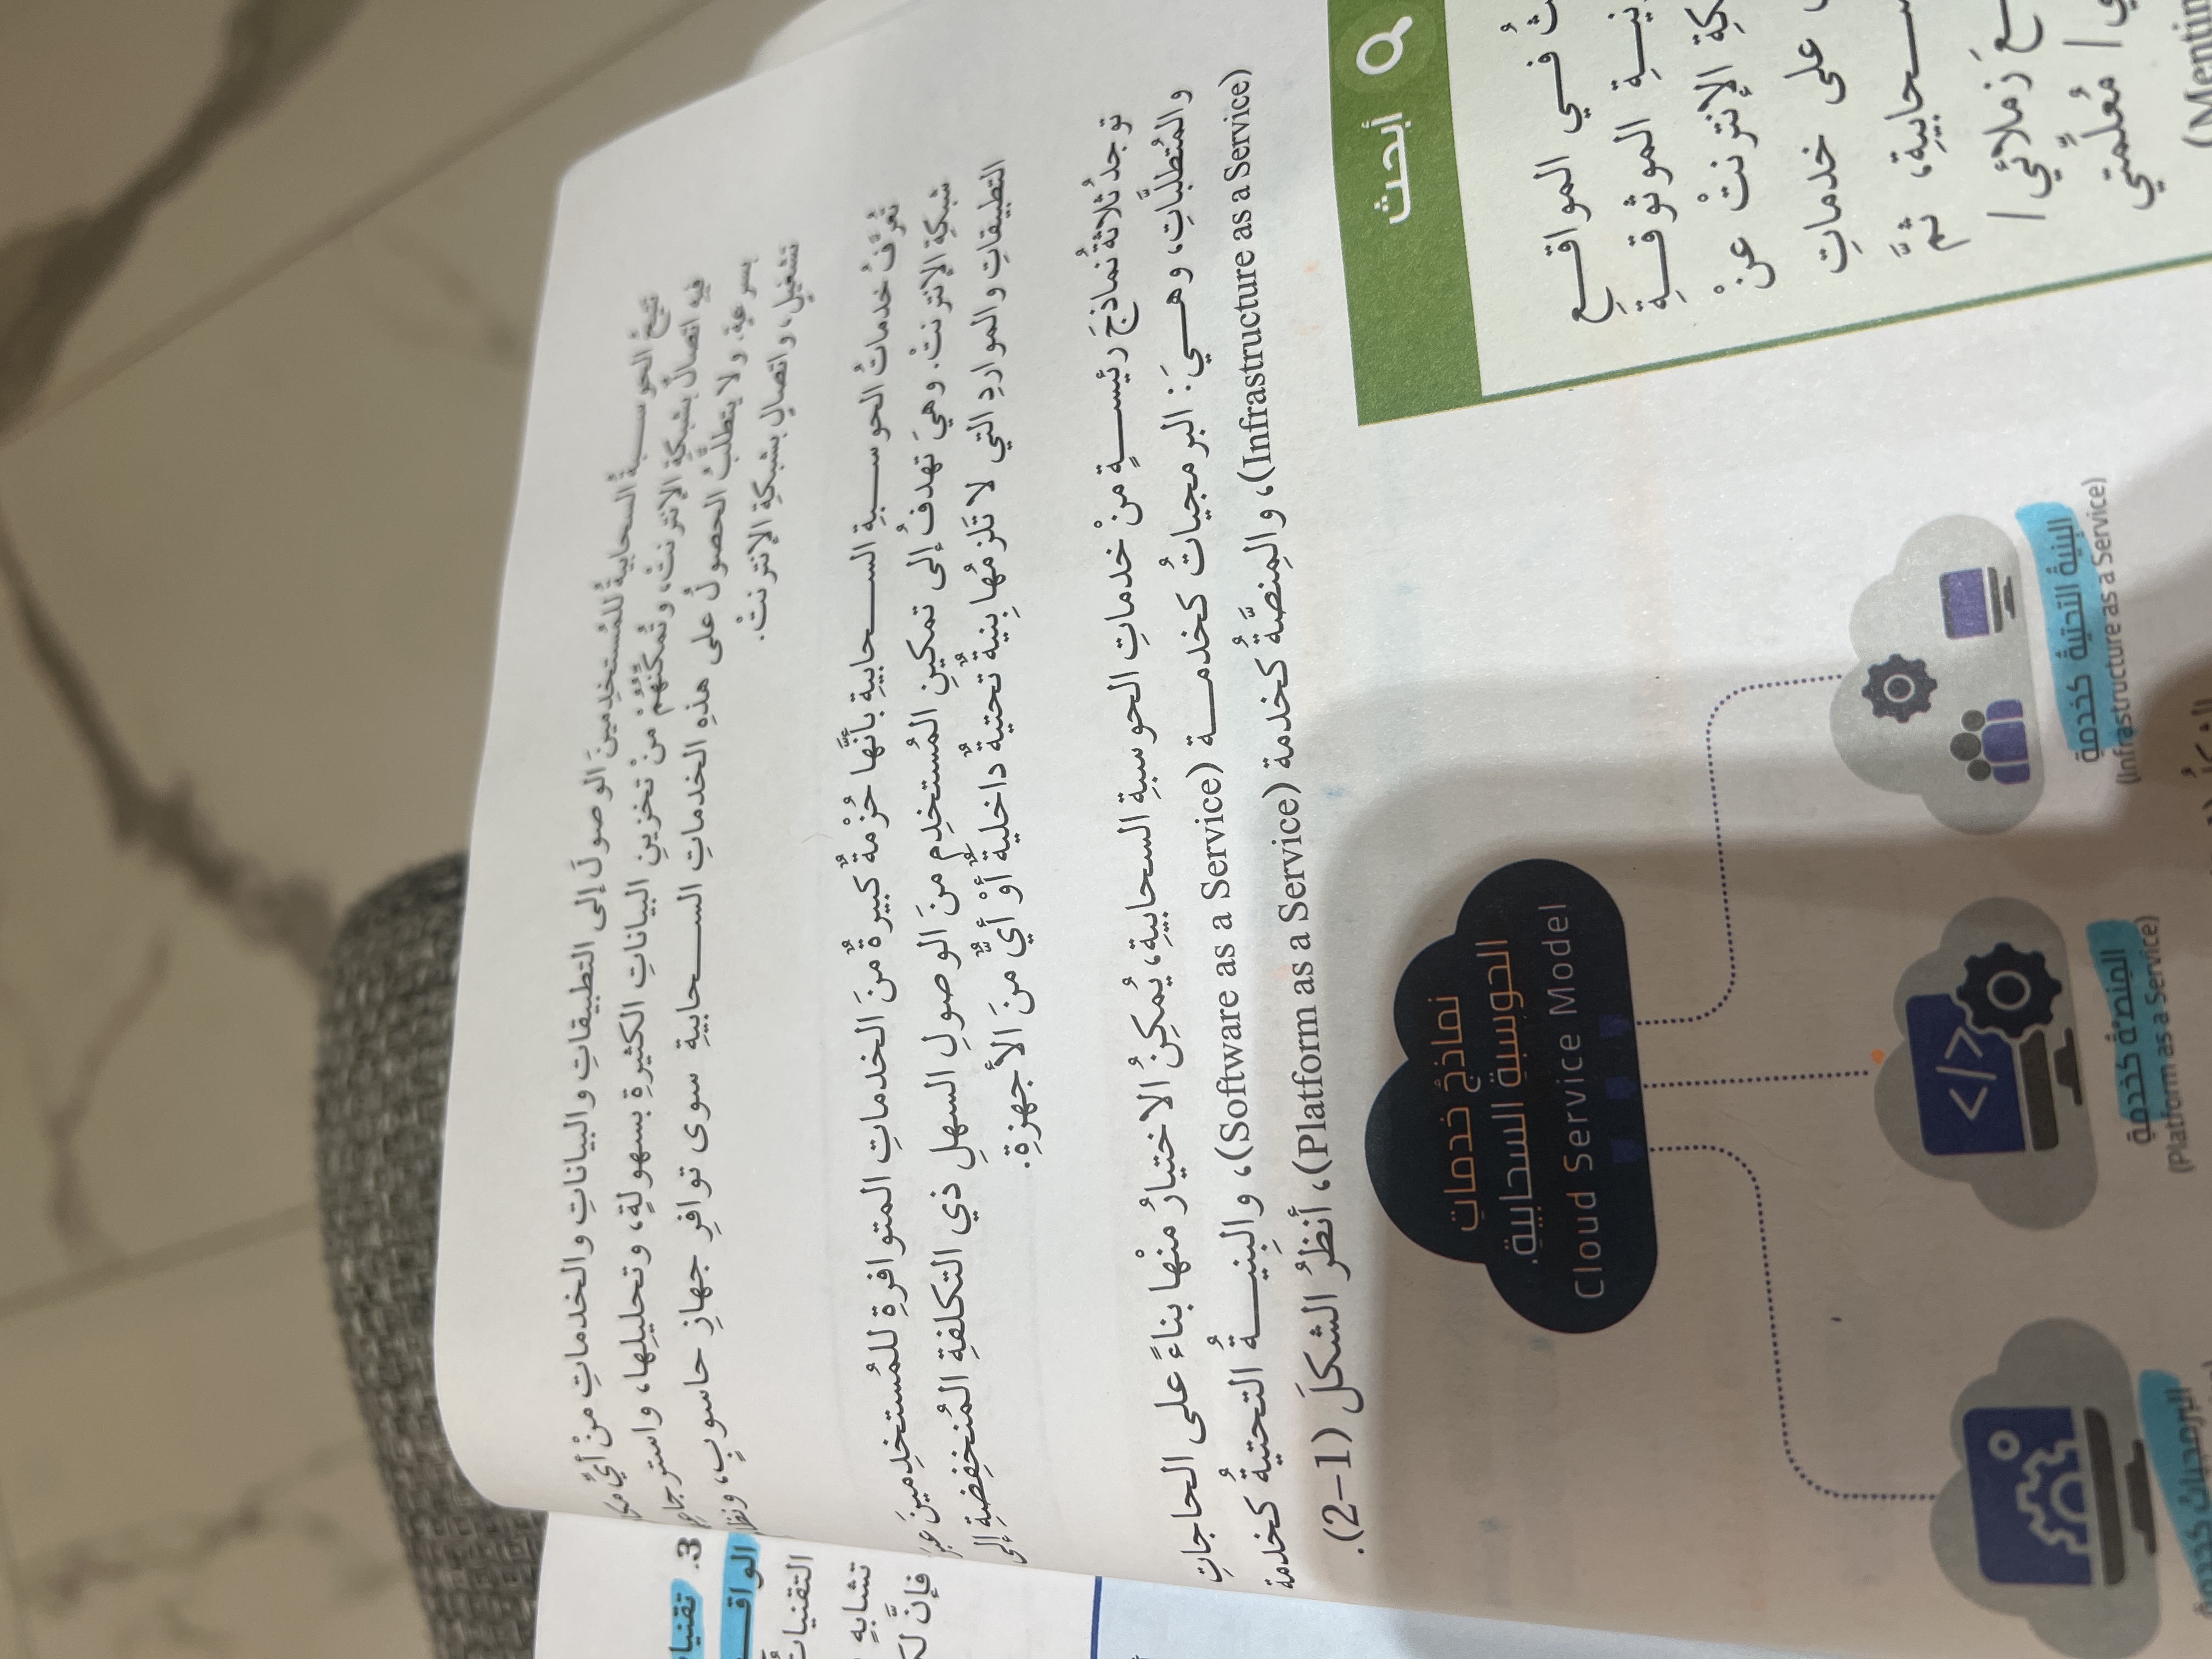 تتيحُ الحوسبةُ السحابيةُ للمُستخدِمينَ الوصولَ إلى التطبيقاتِ والبياناتِ والخدماتِ منْ أيِّ
فيهِ اتصالٌ بشبكةِ الإنترنتْ، وتُمكِّنُهُمْ منْ تخزينِ البياناتِ الكثيرةِ بسهولةٍ، وتحليلِها،
بسرعةٍ. ولا يتطلَّبُ الحصولُ على هذهِ الخدماتِ السحابيةِ سوى توافرِ جهازِ حاسوبٍ،
تشغيلٍ، واتصالٍ بشبكةِ الإنترنتْ.
تُعرَّفُ خدماتُ الحوسبةِ السحابيةِ بأنَّها حُزْمةٌ كبيرةٌ منَ الخدماتِ المتوافرةِ للمُستخدِمينَ عبرَ
شبكةِ الإنترنتْ. وهيَ تهدفُ إلى تمكينِ المُستخدِمِ منَ الوصولِ السهلِ ذي التكلفةِ المُنخفِضةِ إلى
التطبيقاتِ والمواردِ التي لا تَلزمُها بنيةٌ تحتيةٌ داخليةٌ أوْ أيٌّ منَ الأجهزةِ.
توجدُ ثلاثةُ نماذجَ رئيسةٍ منْ خدماتِ الحوسبةِ السحابيةِ، يُمكِنُ الاختيارُ منْها بناءً على الحاجاتِ
والمُتطلَّباتِ، وهيَ: البرمجياتُ كخدمة (Software as a Service)، والبِنيةُ التحتيةُ كخدمة
(Infrastructure as a Service)، والمِنصَّةُ كخدمة (Platform as a Service)، أنظرُ الشكلَ (1-2).
نماذجُ خدماتِ
الحوسبةِ السحابيةِ.
Cloud Service Model
البنيةُ التحتيةُ كخدمةٍ
(Infrastructure as a Service)
المنصّةُ كخدمةٍ
(Platform as a Service)
البرمجياتُ كخدمةٍ
أبحث
في المواقعِ
الموثوقةِ
الإنترنتْ عنْ
على خدماتِ
ثمَّ
زملائي/
مُعلِّمتي
3.
التقنياتُ
تشابهِ